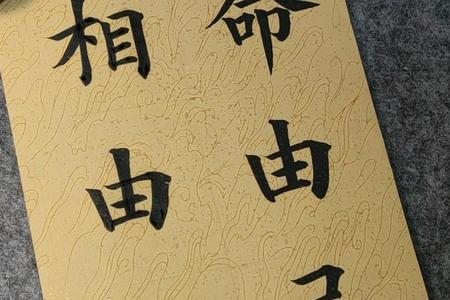 命由
相由